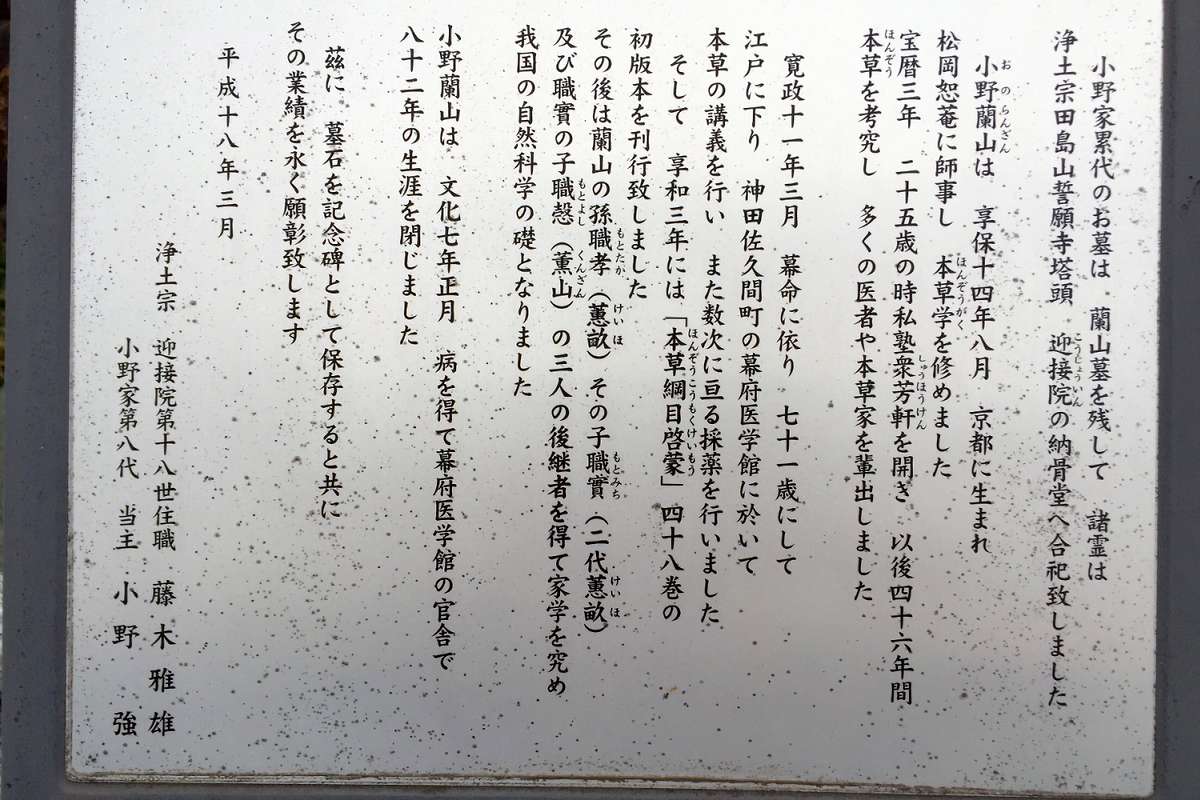 小野家累代のお墓は　蘭山墓を残して　諸霊は
浄土宗田島山誓願寺塔頭　迎接院の納骨堂へ合祀致しました
小野蘭山は　享保十四年八月　京都に生まれ
松岡恕菴に師事し　本草学を修めました
宝暦三年　二十五歳の時私塾衆芳軒を開き　以後四十六年間
本草を考究し　多くの医者や本草家を輩出しました
寛政十一年三月　幕命に依り　七十一歳にして
江戸に下り　神田佐久間町の幕府医学館に於いて
本草の講義を行い　また数次に亘る採薬を行いました
そして　享和三年には「本草綱目啓蒙」四十八巻の
初版本を刊行致しました
その後は蘭山の孫職孝（蕙畝）その子職實（二代蕙畝）
及び職實の子職愨（薫山）の三人の後継者を得て家学を究め
我国の自然科学の礎となりました
小野蘭山は　文化七年正月　病を得て幕府医学館の官舎で
八十二年の生涯を閉じました
茲に　墓石を記念碑として保存すると共に
その業績を永く願彰致します
平成十八年三月
浄土宗　迎接院第十八世住職　藤木雅雄
小野家第八代　当主　小野　強